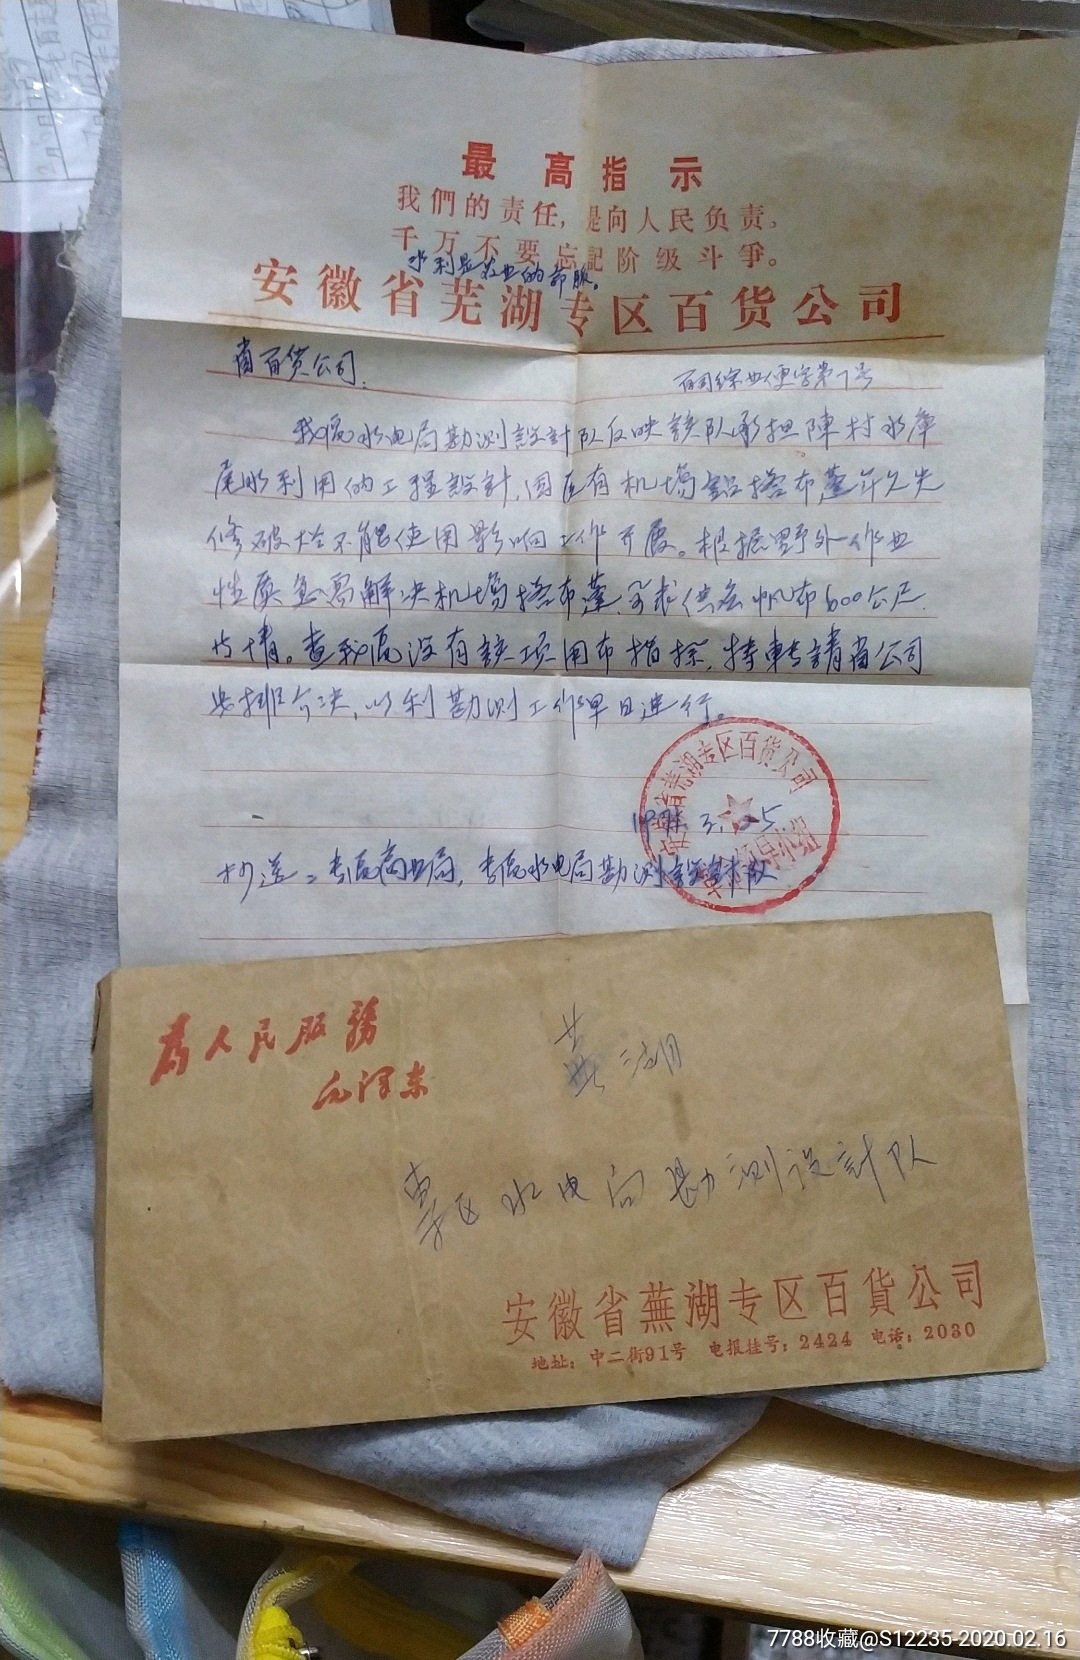 最高指示
我們的责任，是向人民负责。
千万不要忘記阶级斗爭。
水利是农业的命脈。
安徽省芜湖专区百货公司
省百货公司：
百司综业便字第7号
我区水电局勘测設計队反映該队承担陳村水库
尾水利用的工程設計，因原有机塢鉛搭布蓬年久失
修破烂不能使用影响工作开展。根据野外作业
性质急需解决机塢搭布蓬，要求供应帆布600公尺
等情。查我区没有該项用布指标，特轉請省公司
安排解决，以利勘测工作早日进行。
安徽省芜湖专区百货公司
3.25
抄送：专区商业局，专区水电局勘测設計队
為人民服務
毛澤东
芜湖
專区水电局勘测设計队
安徽省蕪湖专区百貨公司
地址：中二街91号 电报挂号：2424 电话：2030
7788收藏@S12235-2020.02.16